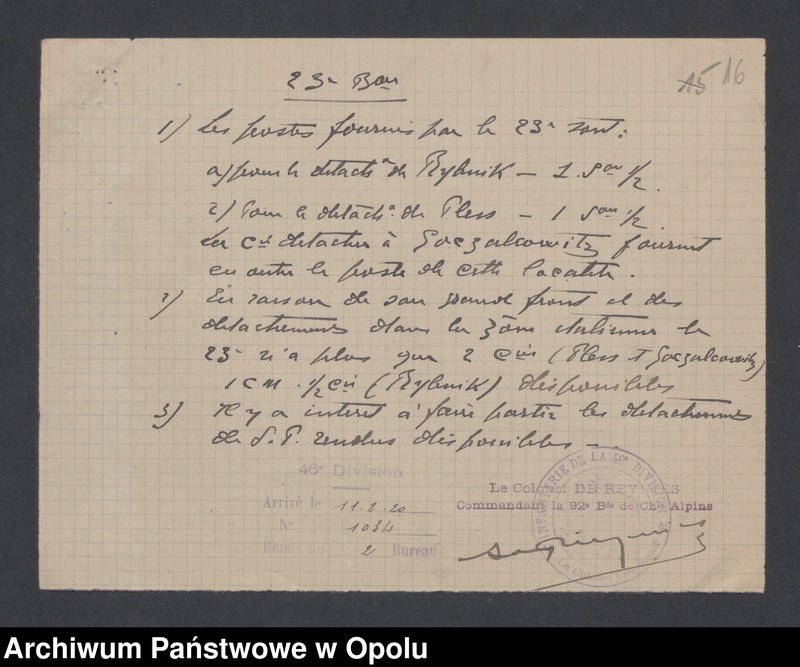 15 16
23e Bon
1) Les postes fournis par le 23e sont:
a) pour le détacht de Rybnik — 1 Son 1/2.
2) Pour le détacht de Pless — 1 Son 1/2.
La Cie détachée à Goczalcowitz fournit
en outre le poste de cette localité.
2) En raison de son grand front et des
détachements dans la zône italienne le
23e n'a plus que 2 Cies (Pless et Goczalcowitz)
1 CM. 1/2 Cie (Rybnik) disponibles
3) Il y a intérêt à faire partir les détachements
de S.P. rendus disponibles —
46e Division
Arrivé le 11-2-20
No 1034
2 Bureau
Le Colonel DE REYNIES
Commandant la 92e Bde de Chrs Alpins
INFANTERIE DE LA 46e DIVISION
Le Colonel
Archiwum Państwowe w Opolu